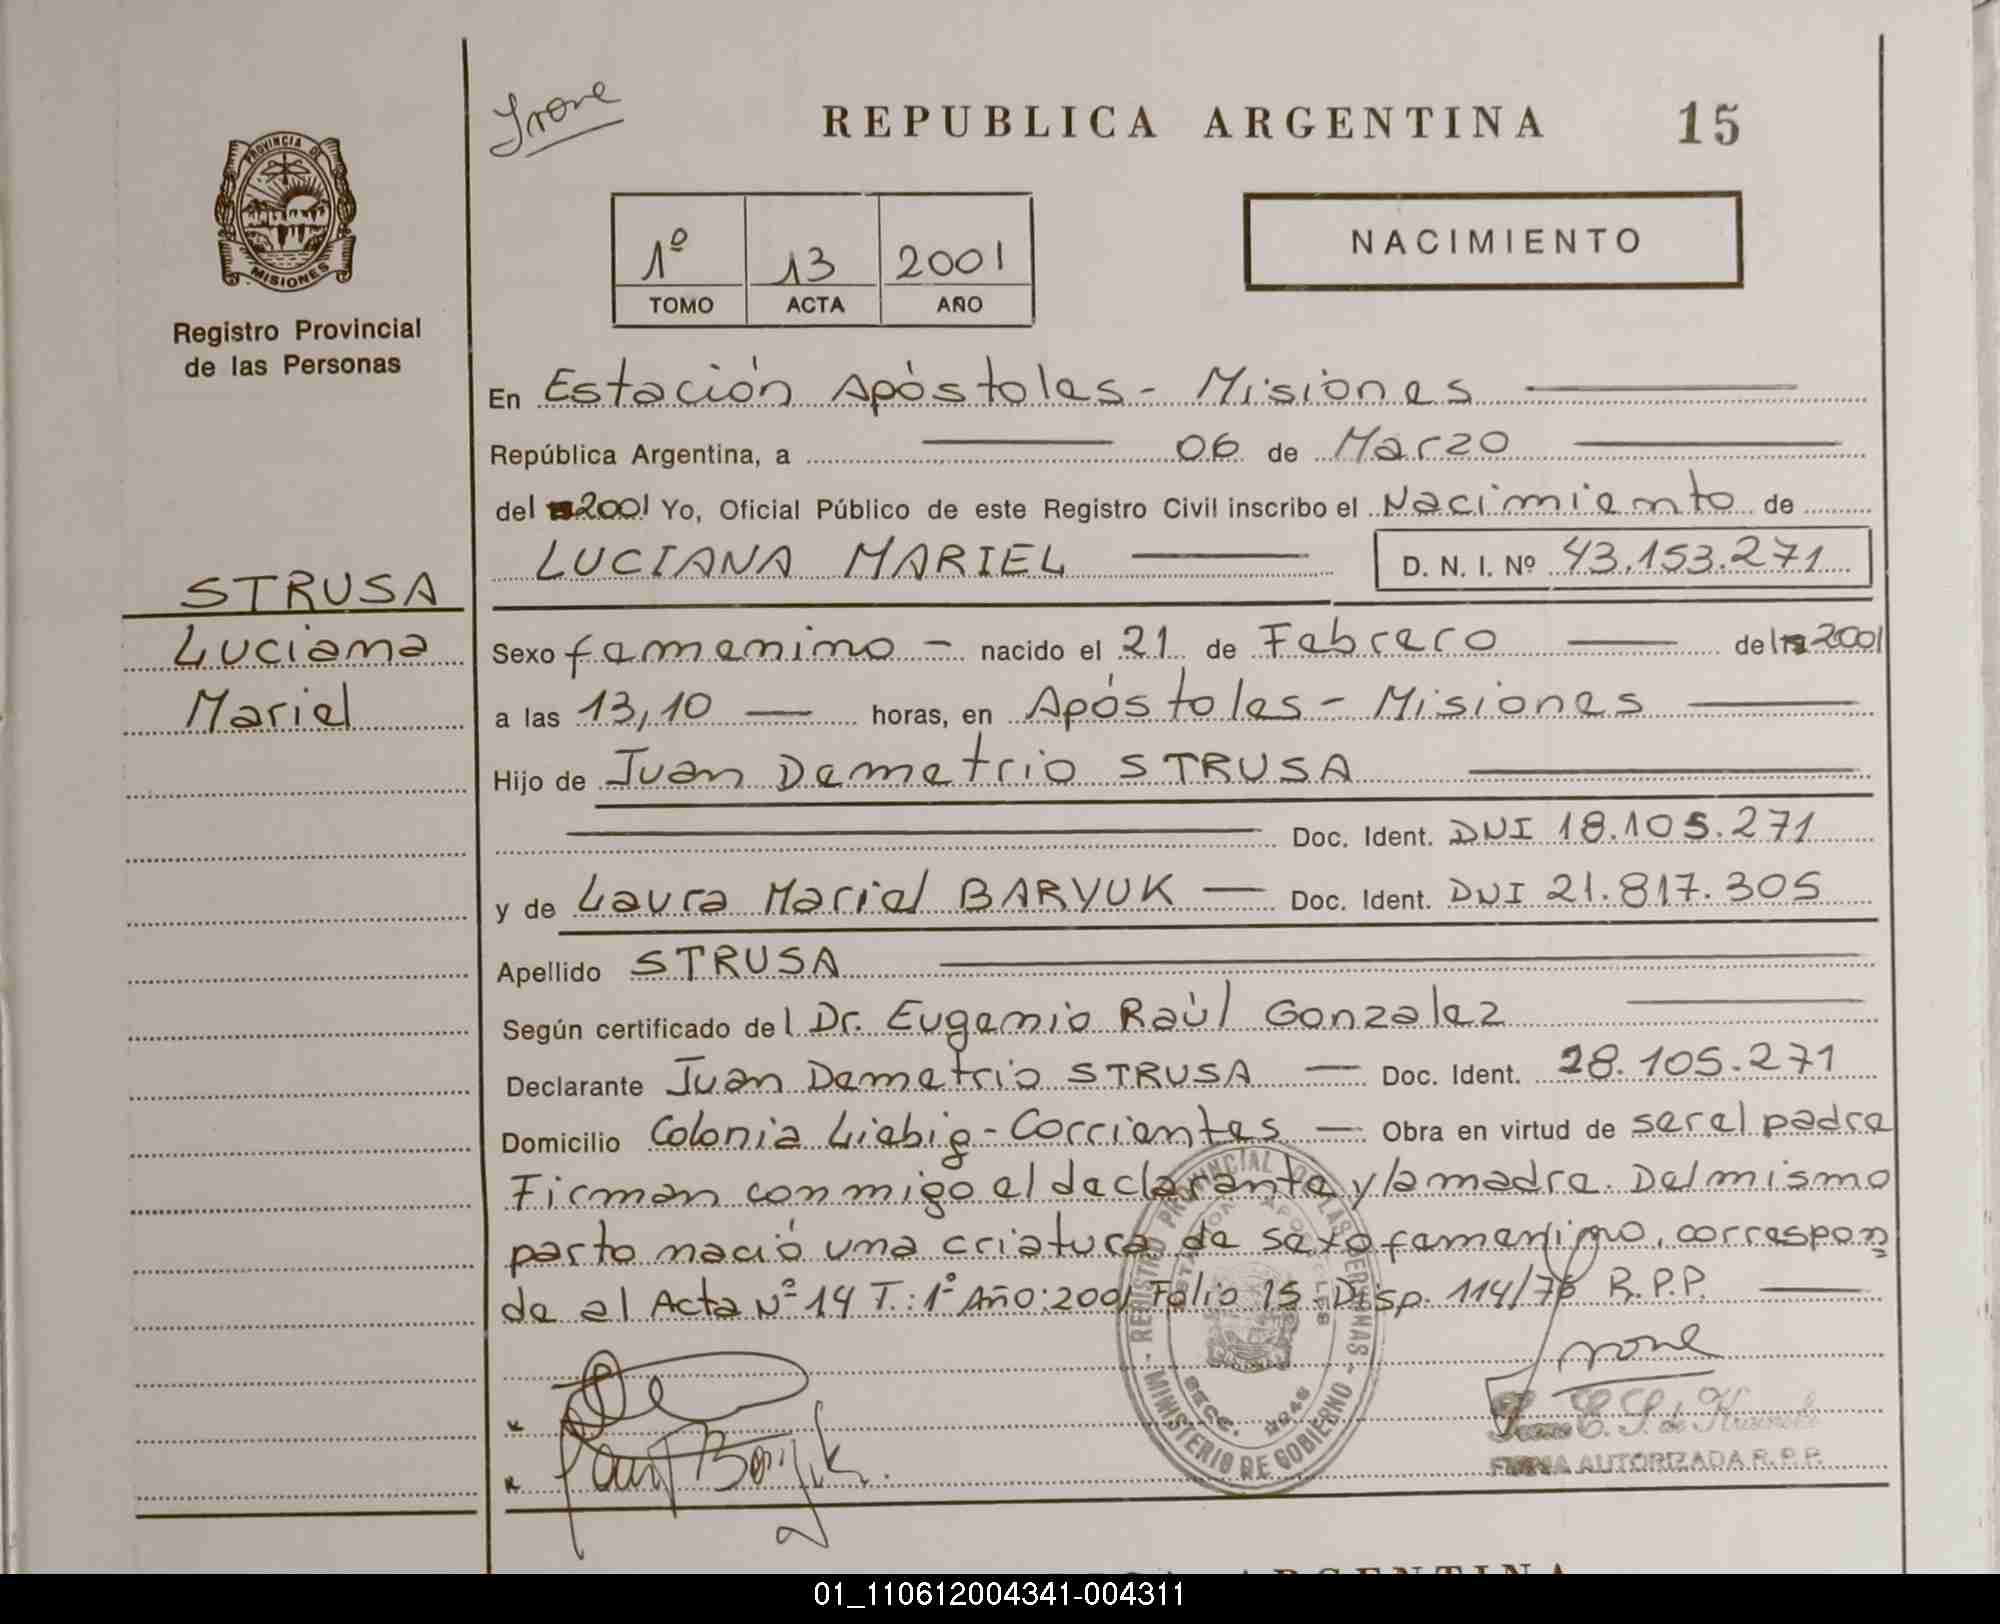 Irone
REPUBLICA ARGENTINA 15
PROVINCIA DE
MISIONES
Registro Provincial
de las Personas
1º 13 2001
TOMO ACTA AÑO
NACIMIENTO
En Estación Apóstoles - Misiones
República Argentina, a 06 de Marzo
del 2001 Yo, Oficial Público de este Registro Civil inscribo el Nacimiento de
LUCIANA MARIEL D. N. I. Nº 43.153.271
STRUSA
Luciana
Mariel
Sexo femenino - nacido el 21 de Febrero del 2001
a las 13,10 horas, en Apóstoles - Misiones
Hijo de Juan Demetrio STRUSA
Doc. Ident. DNI 18.105.271
y de Laura Mariel BARYUK Doc. Ident. DNI 21.817.305
Apellido STRUSA
Según certificado del Dr. Eugenio Raúl Gonzalez
Declarante Juan Demetrio STRUSA Doc. Ident. 28.105.271
Domicilio Colonia Liebig - Corrientes Obra en virtud de ser el padre
Firman conmigo el declarante y la madre. Del mismo
parto nació una criatura de sexo femenino, correspon
de al Acta Nº 14 T.: 1º Año: 2001 Folio 15. Disp. 114/76 R.P.P.
REGISTRO PROVINCIAL DE LAS PERSONAS
MINISTERIO DE GOBIERNO
FIRMA AUTORIZADA R.P.P.
ARGENTINA
01_110612004341-004311